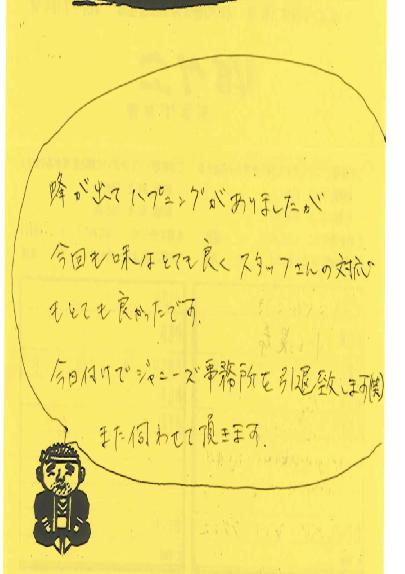 蜂が出てハプニングがありましたが
今回も味はとても良くスタッフさんの対応
もとても良かったです。
今日付けでジャニーズ事務所を引退致します(笑)
また伺わせて頂きます。